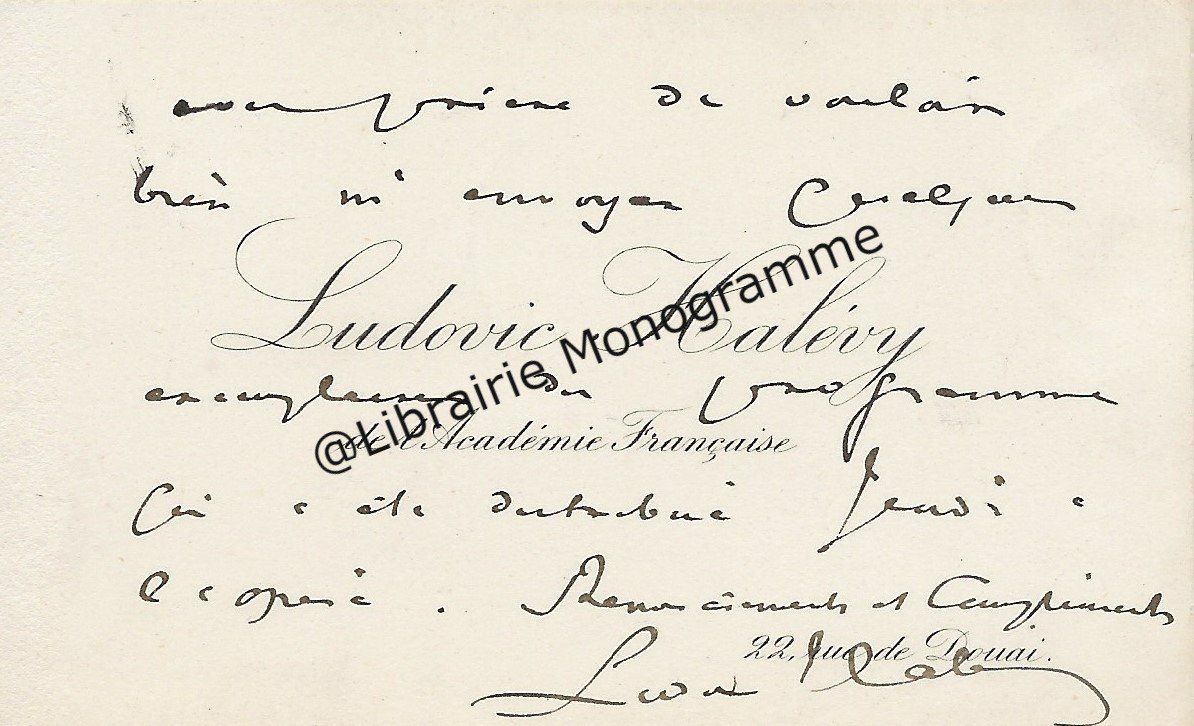 avec prière de vouloir
bien m'envoyer quelques
Ludovic Halévy
@Librairie Monogramme
exemplaires du programme
de l'Académie Française
qui a été distribué jeudi à
l'opéra. Remerciements et Compliments
22, rue de Douai.
Ludovic Halévy